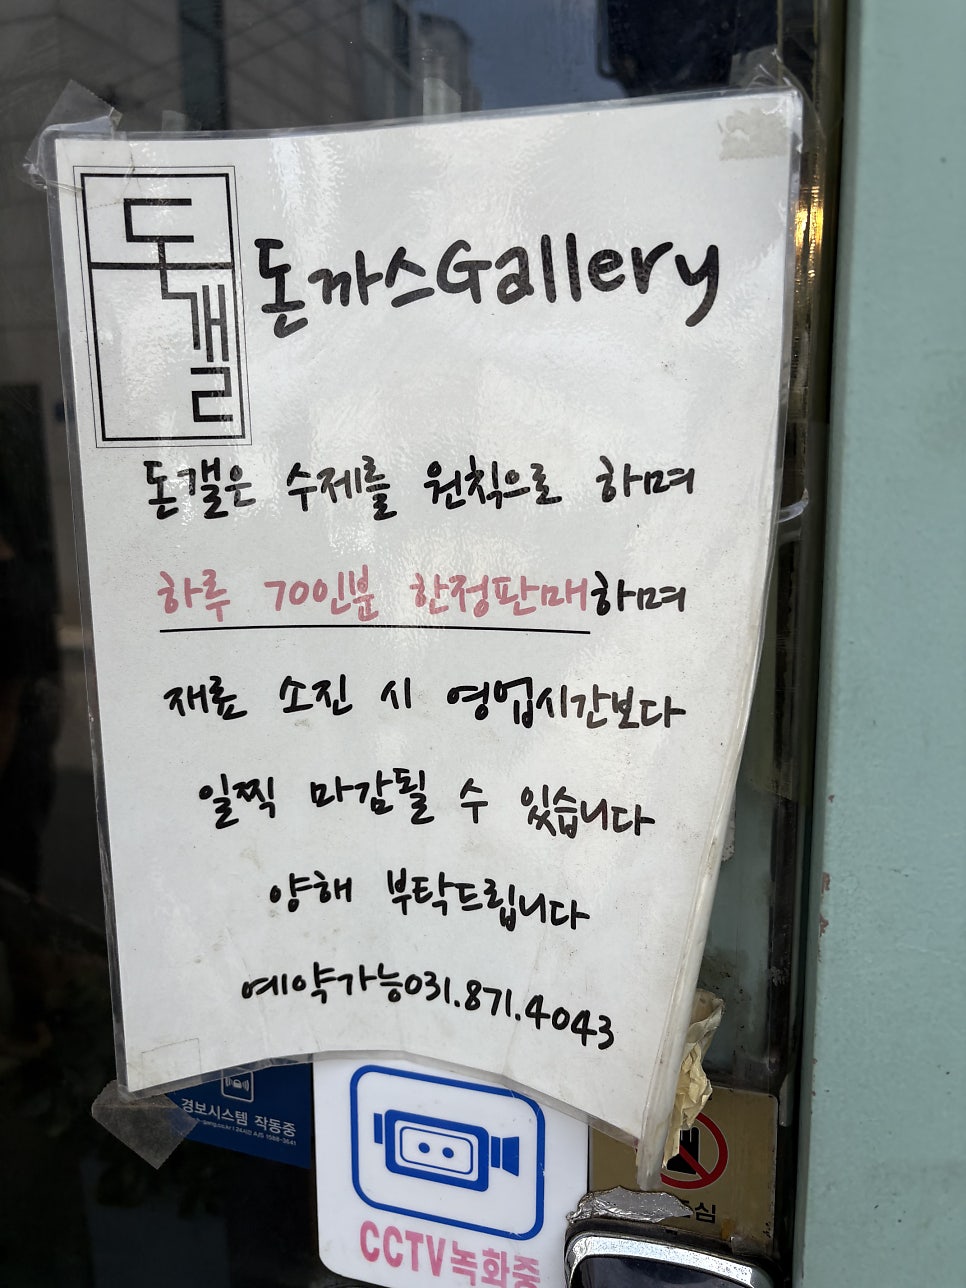 돈갤
돈까스Gallery
돈갤은 수제를 원칙으로 하며
하루 70인분 한정판매하며
재료 소진 시 영업시간보다
일찍 마감될 수 있습니다
양해 부탁드립니다
예약가능031.871.4043
경보시스템 작동중
24시간 A/S 1588-3641
CCTV녹화중